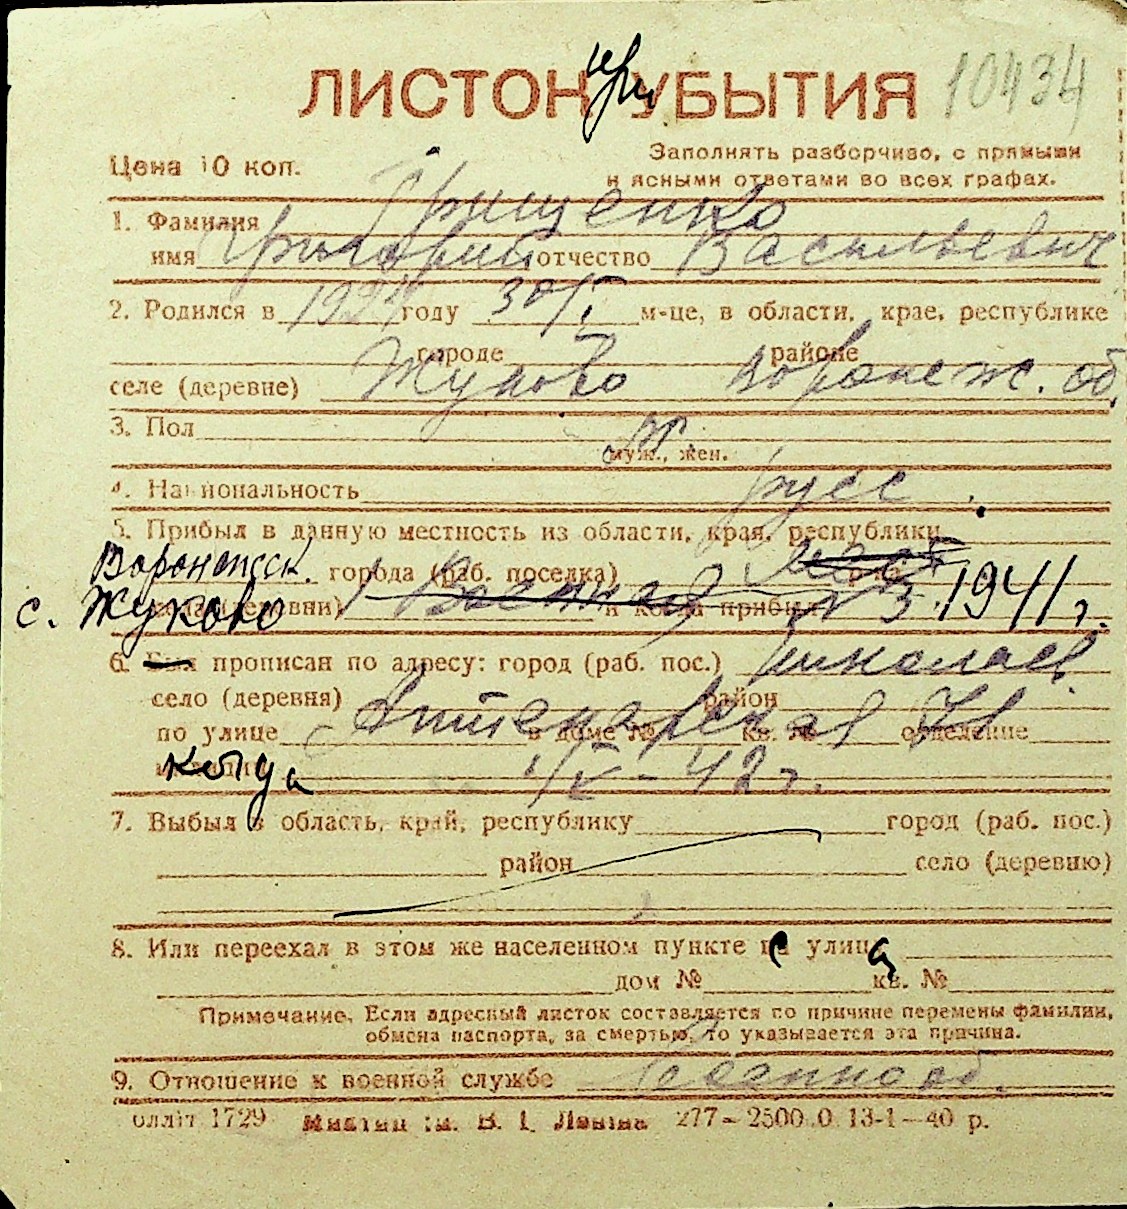 ЛИСТОК при УБЫТИЯ 10434
Цена 10 коп.
Заполнять разборчиво, с прямыми
и ясными ответами во всех графах.
1. Фамилия Грищенко
имя Григорий отчество Васильевич
2. Родился в 1924 году 30/I. м-це, в области, крае, республике
городе районе
селе (деревне) Жуково Воронеж. об.
3. Пол М.
муж., жен.
4. Национальность русс.
5. Прибыл в данную местность из области, края, республики
Воронежск. города (раб. поселка)
с. Жуково (деревни) и когда прибыл 3. 1941 г.
6. Был прописан по адресу: город (раб. пос.) Николаев
село (деревня) район
по улице в доме № кв. № отделение
милиции когда 1/X-42 г.
7. Выбыл в область, край, республику город (раб. пос.)
район село (деревню)
8. Или переехал в этом же населенном пункте с улица
дом № кв. №
Примечание. Если адресный листок составляется по причине перемены фамилии,
обмена паспорта, за смертью, то указывается эта причина.
9. Отношение к военной службе Военнооб.
1729 им. В. І. Леніна 277—2500.0 13-1—40 р.